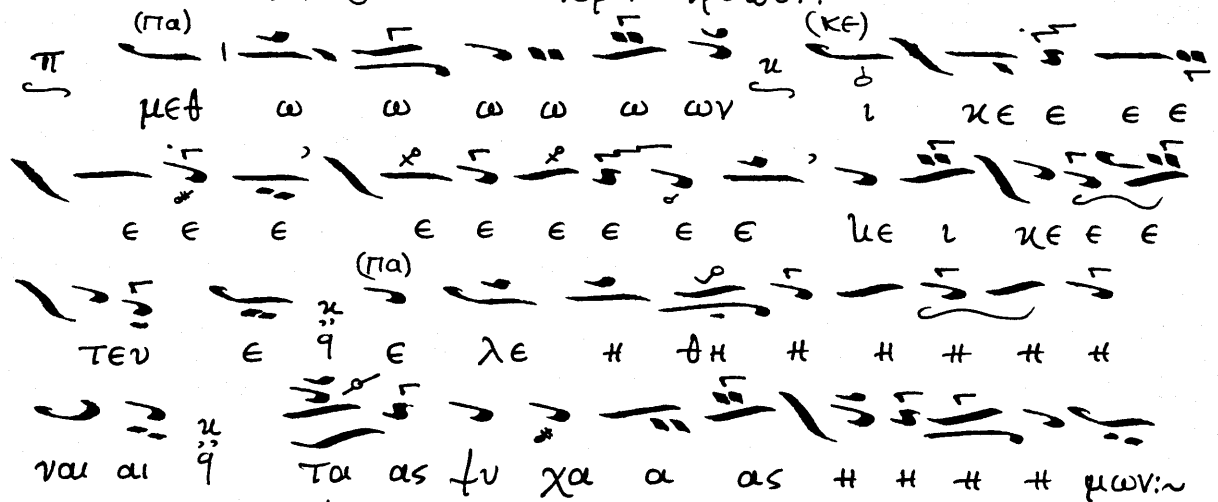 (Πα) (κε)
π μεθ ω ω ω ω ω ων κ ι κε ε ε ε
ε ε ε ε ε ε ε ε ε κε ι κε ε ε
(Πα)
τευ ε κ q ε λε η θη η η η η η
ναι αι κ q τα ας ψυ χα α ας η η η η μων:~